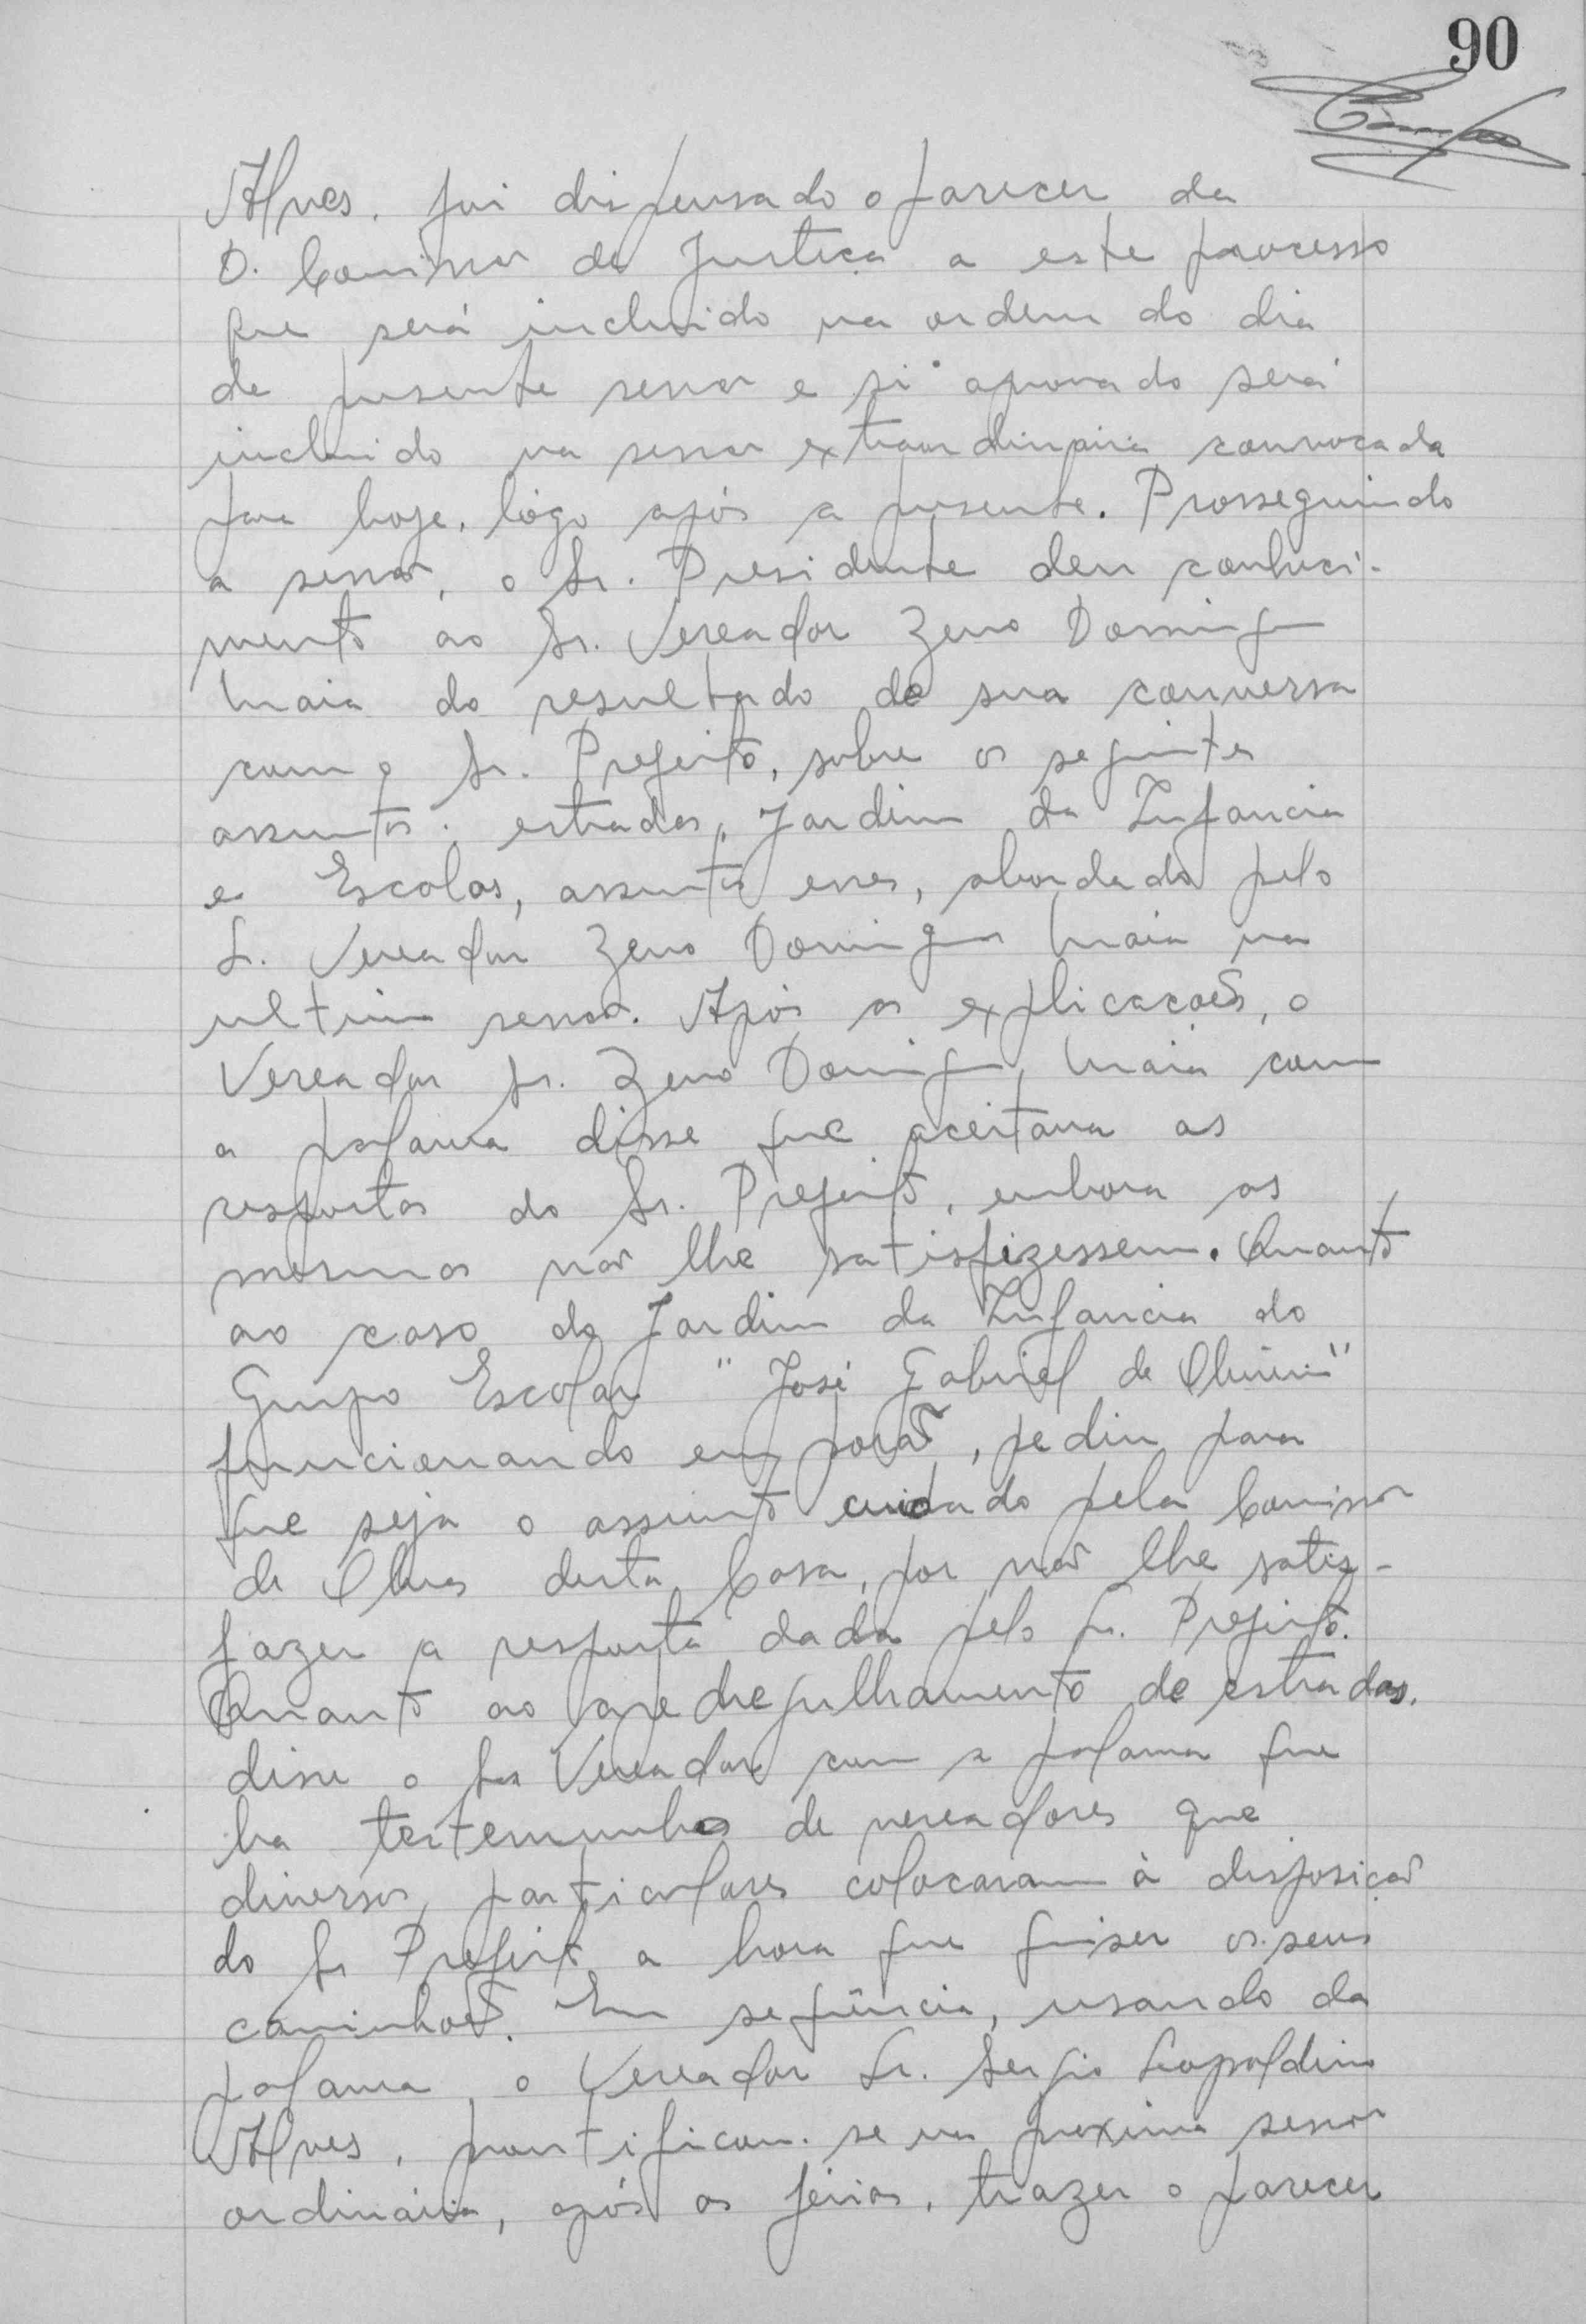 90
Alves. foi dispensado o parecer da
D. Comissão de Justiça a este processo
que será incluido na ordem do dia
de presente sessão e si aprovado será
incluido na sessão extraordinária convocada
para hoje, lógo após a presente. Prosseguindo
a sessão, o Sr. Presidente deu conheci-
mento ao Sr. Vereador Zeno Domingues
Maia do resultado de sua conversa
com o Sr. Prefeito, sobre os seguintes
assuntos: estradas, Jardim da Infancia
e Escolas, assuntos esses, abordado pelo
Sr. Vereador Zeno Domingues Maia na
ultima sessão. Após as explicacões, o
Vereador Sr. Zeno Domingues Maia com
a palavra disse que aceitava as
respostas do Sr. Prefeito, embora as
mesmas não lhe satisfizessem. Quanto
ao caso do Jardim da Infancia do
Grupo Escolar "José Gabriel de Oliveira"
funcionando em porão, pediu para
que seja o assunto cuidado pela Comissão
de Obras desta Casa, por não lhe satis-
fazer a resposta dada pelo Sr. Prefeito.
Quanto ao apedregulhamento de estradas.
disse o Sr Vereador com a palavra que
ha testemunhas de vereadores que
diversos particulares colocaram à disposição
do Sr Prefeito a hora que quiser os seus
caminhões. Em seqüência, usando da
palavra, o Vereador Sr. Sergio Leopoldino
Alves, prontificou-se na proxima sessão
ordinária, após as férias, trazer o parecer